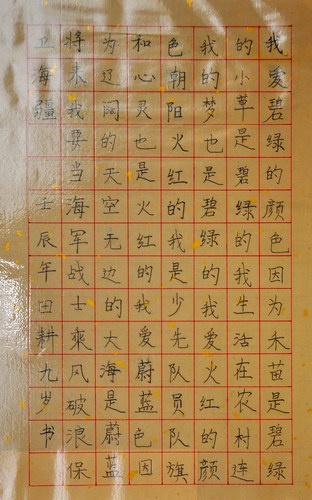 我爱碧绿的颜色因为禾苗是碧绿
的小草是碧绿的我生活在农村连
我的梦也是碧绿的我爱火红的颜
色朝阳火红的我是少先队员队旗
和心灵也是火红的我爱蔚蓝色因
为辽阔的天空无边的大海是蔚蓝
将来我要当海军战士乘风破浪保
卫海疆 壬辰年田耕九岁书